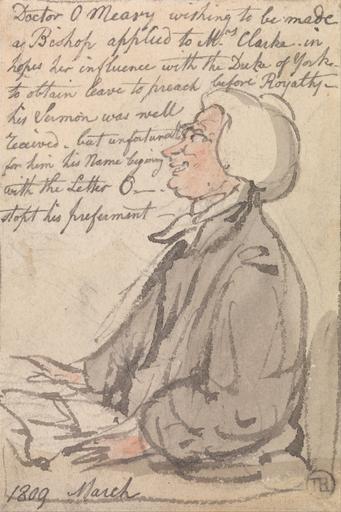 Doctor O Meary wishing to be made
a Bishop applied to Mrs Clarke in
hopes her influence with the Duke of York
to obtain leave to preach before Royalty -
his Sermon was well
received. but unfortunately
for him his Name begining
with the Letter O -
stopt his preferment -
1809 March